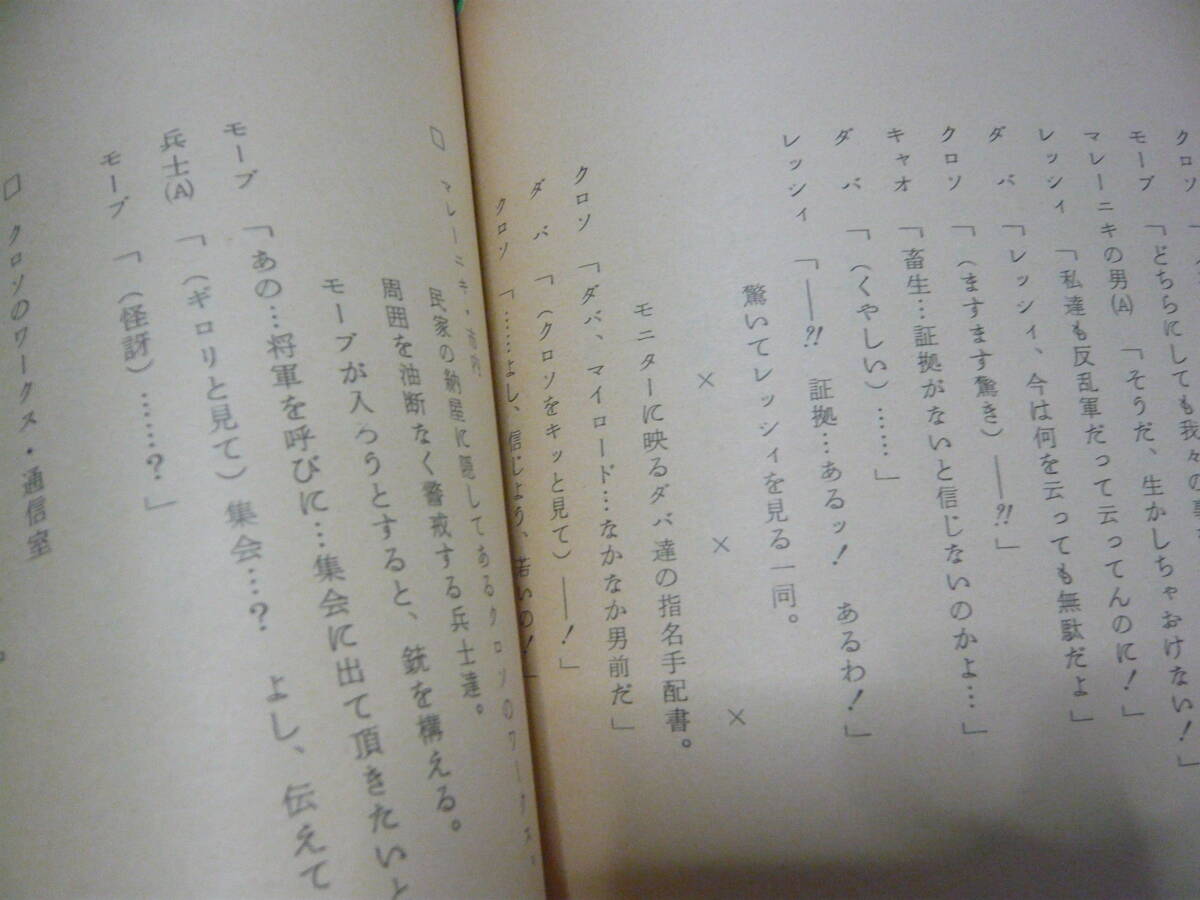 クロソ「
モーブ「どちらにしても我々の事
マレーニキの男(A)「そうだ、生かしちゃおけない！」
レッシィ「私達も反乱軍だって云ってんのに！」
ダバ「レッシィ、今は何を云っても無駄だよ」
クロソ「(ますます驚き)――?!」
キャオ「畜生…証拠がないと信じないのかよ…」
ダバ「(くやしい)……」
レッシィ「――?!　証拠…あるッ！　あるわ！」
驚いてレッシィを見る一同。
×　×　×
モニターに映るダバ達の指名手配書。
クロソ「ダバ、マイロード…なかなか男前だ」
ダバ「(クロソをキッと見て)――！」
クロソ「……よし、信じよう、若いの！」
◇　マレーニキ・市内
民家の納屋に隠してあるクロソのワークス。
周囲を油断なく警戒する兵士達。
モーブが入ろうとすると、銃を構える。
モーブ「あの…将軍を呼びに…集会に出て頂きたいと
兵士(A)「(ギロリと見て)集会…？　よし、伝えて
モーブ「(怪訝)……？」
◇　クロソのワークス・通信室